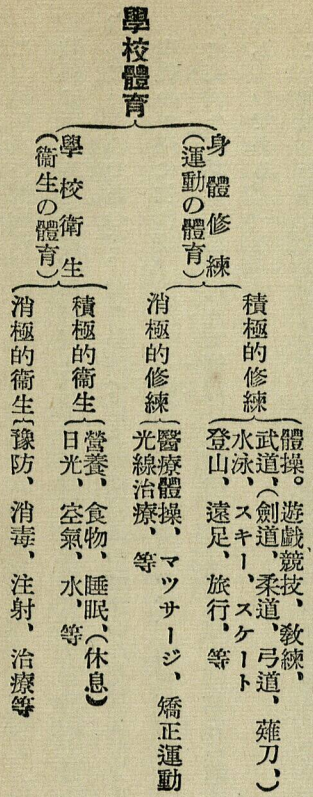 學校體育
身體修練
(運動の體育)
積極的修練
體操。遊戲競技、敎練、
武道、(劍道、柔道、弓道、薙刀、)
水泳、スキー、スケート
登山、遠足、旅行、等
消極的修練
醫療體操、マツサージ、矯正運動
光線治療、等
學校衛生
(衞生の體育)
積極的衞生
營養、食物、睡眠、(休息)
日光、空氣、水、等
消極的衞生
豫防、消毒、注射、治療等